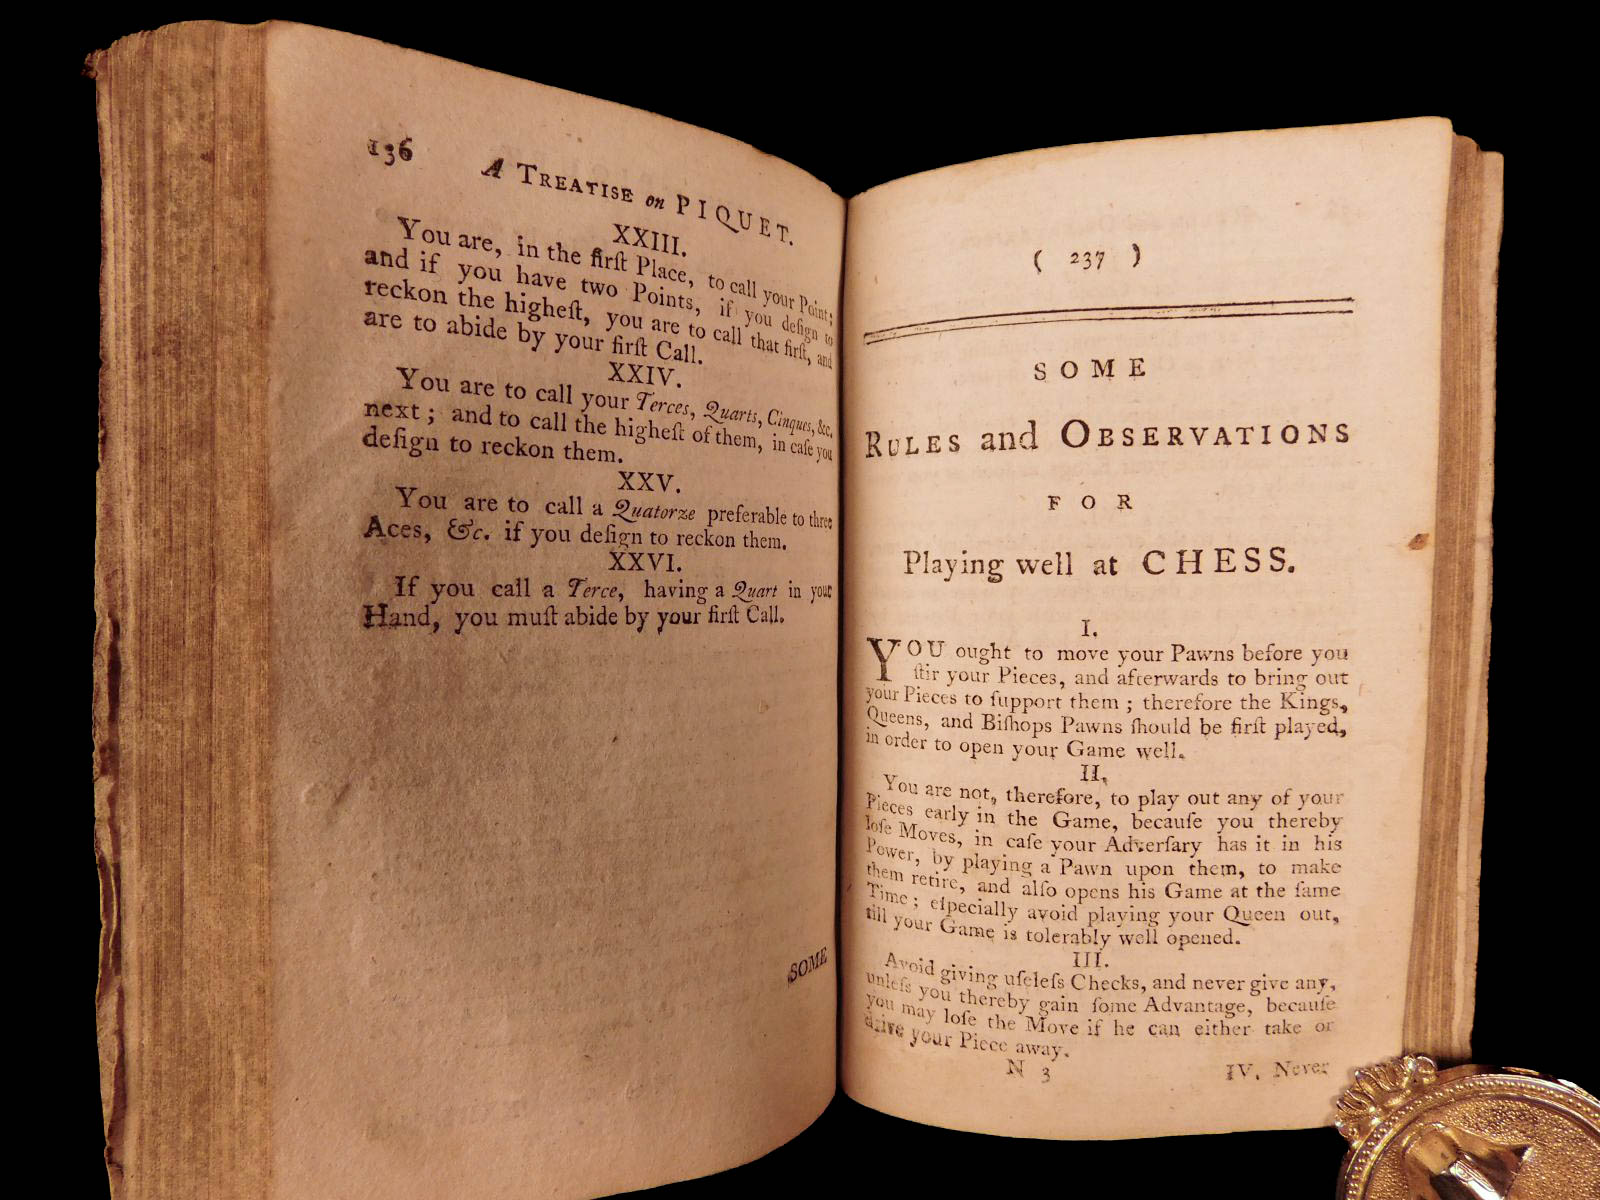 136
A TREATISE on PIQUET.
XXIII.
You are, in the firſt Place, to call your Point;
and if you have two Points, if you deſign to
reckon the higheſt, you are to call that firſt, and
are to abide by your firſt Call.
XXIV.
You are to call your Terces, Quarts, Cinques, &c.
next; and to call the higheſt of them, in caſe you
deſign to reckon them.
XXV.
You are to call a Quatorze preferable to three
Aces, &c. if you deſign to reckon them.
XXVI.
If you call a Terce, having a Quart in your
Hand, you muſt abide by your firſt Call.
SOME
( 237 )
SOME
RULES and OBSERVATIONS
FOR
Playing well at CHESS.
I.
YOU ought to move your Pawns before you
ſtir your Pieces, and afterwards to bring out
your Pieces to ſupport them; therefore the Kings,
Queens, and Biſhops Pawns ſhould be firſt played,
in order to open your Game well.
II.
You are not, therefore, to play out any of your
Pieces early in the Game, becauſe you thereby
loſe Moves, in caſe your Adverſary has it in his
Power, by playing a Pawn upon them, to make
them retire, and alſo opens his Game at the ſame
Time; eſpecially avoid playing your Queen out,
till your Game is tolerably well opened.
III.
Avoid giving uſeleſs Checks, and never give any,
unleſs you thereby gain ſome Advantage, becauſe
you may loſe the Move if he can either take or
drive your Piece away.
N 3
IV. Never